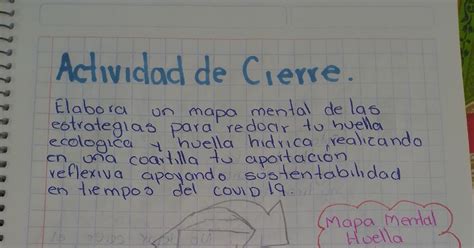 Actividad de Cierre.
Elabora un mapa mental de las
estrategias para reducir tu huella
ecologica y huella hidrica, realizando
en una coartilla tu aportación
reflexiva apoyando sustentabilidad
en tiempos del covid 19.
Mapa Mental
Huella